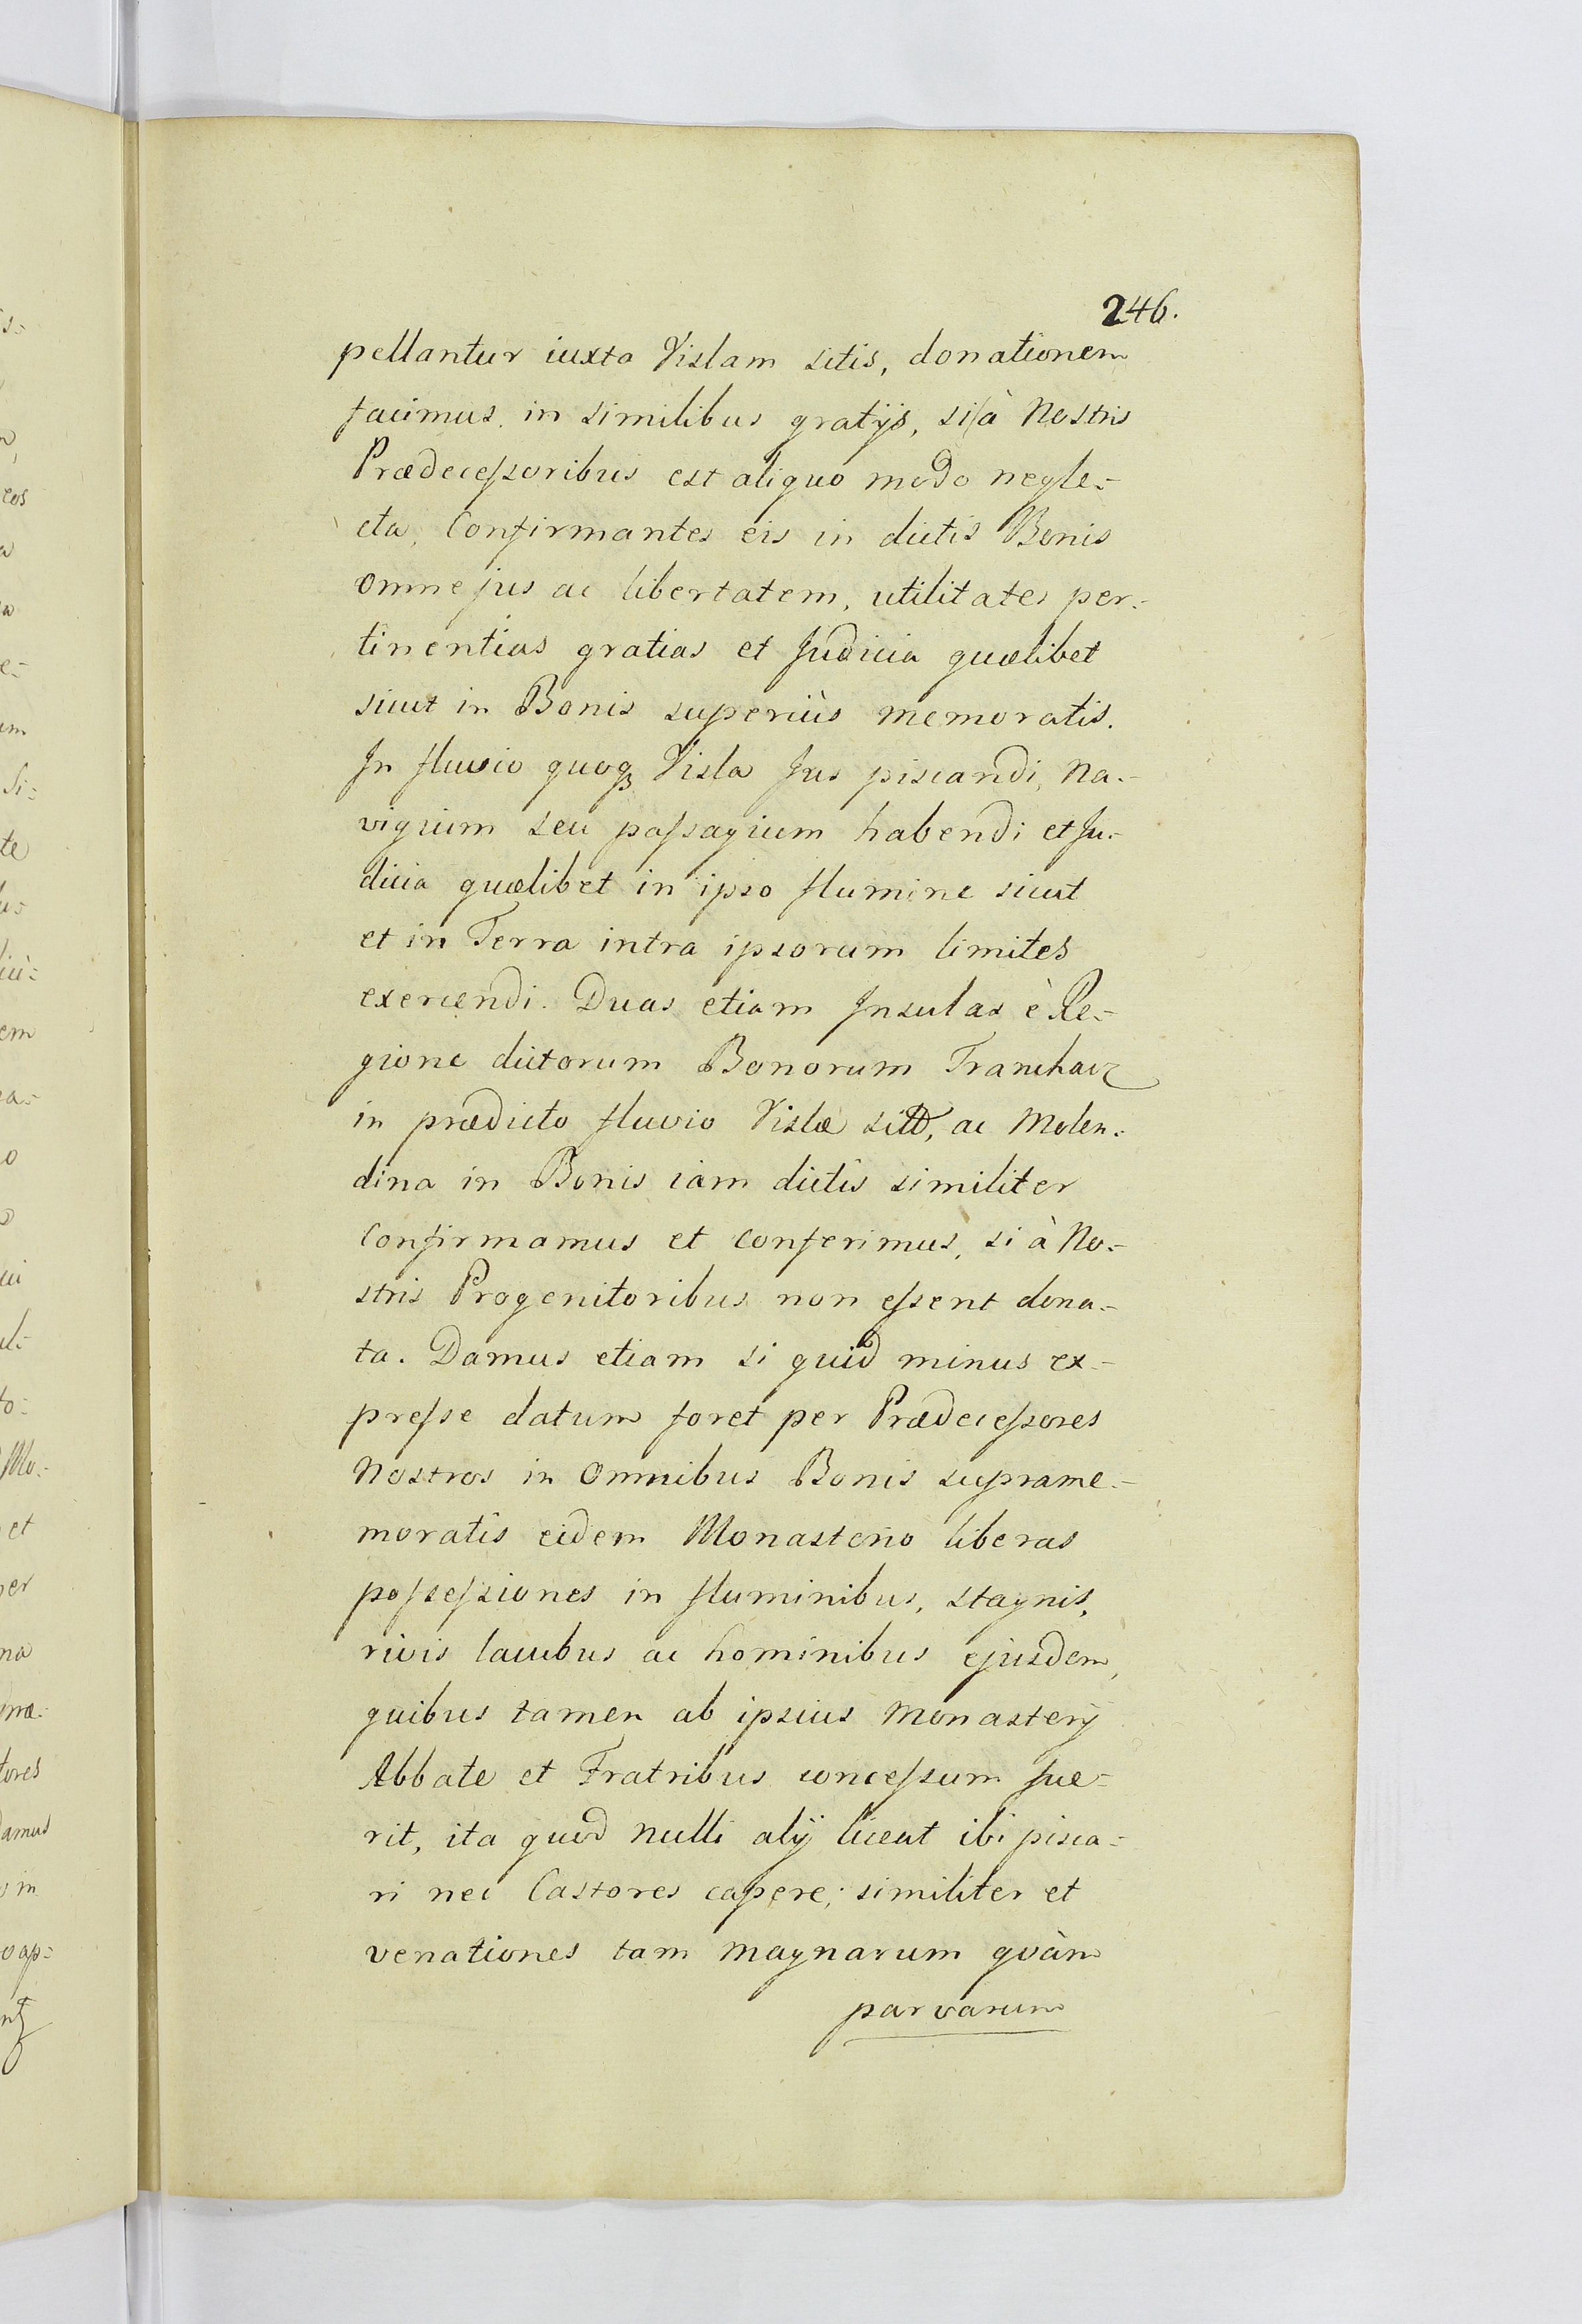 246.
pellantur iuxta Vislam sitis, donationem
facimus in similibus gratijs, si à Nostris
Prædecessoribus est aliquo modo negle-
cta, Confirmantes eis in dictis Bonis
omne jus ac libertatem, utilitates per-
tinentias gratias et Judicia quælibet
sicut in Bonis superiùs memoratis.
In fluvio quoqꝫ Visla Jus piscandi, Na-
vigium seu passagium habendi et Ju-
dicia quælibet in ipso flumine sicut
et in Terra intra ipsorum limites
exercendi. Duas etiam Insulas è Re-
gione dictorum Bonorum Tranchacz
in prædicto fluvio Vislæ ac Molen-
dina in Bonis iam dictis similiter
Confirmamus et conferimus, si à No-
stris Progenitoribus non essent dona-
ta. Damus etiam si quid minus ex-
presse datum foret per Prædecessores
Nostros in Omnibus Bonis suprame-
moratis eidem Monasterio liberas
possessiones in fluminibus, stagnis,
rivis lacubus ac hominibus ejusdem,
quibus tamen ab ipsius Monasterij
Abbate et Fratribus concessum fue-
rit, ita quod nulli alij liceat ibi pisca-
ri nec Castores capere; similiter et
venationes tam magnarum quàm
parvarum